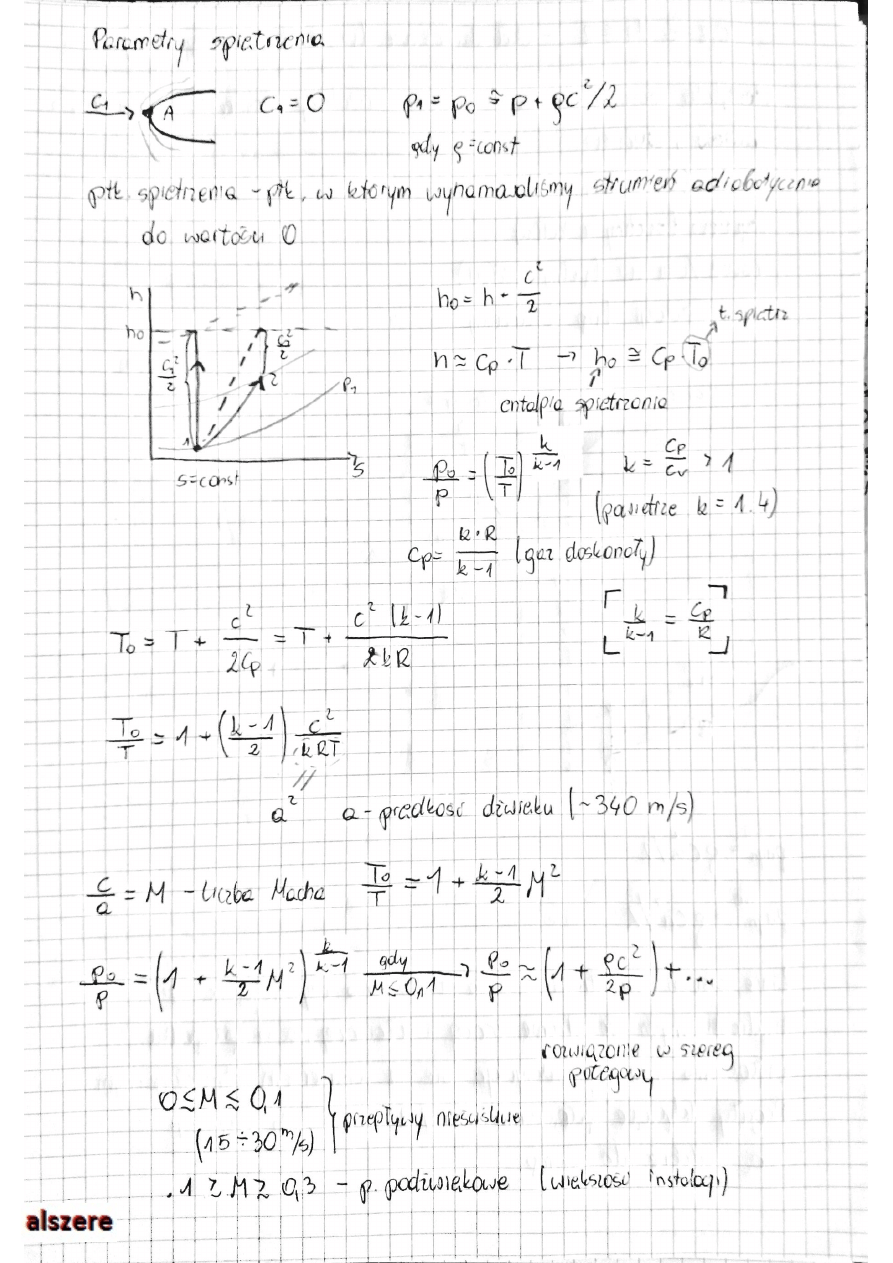 Parametry spiętrzenia
C₁ A C₁ = 0 p₁ = p₀ ≅ p + ρc²/2
gdy ρ = const
pkt. spiętrzenia - pkt. w którym wyhamowaliśmy strumień adiabatycznie
do wartości 0
h h₀ C₁²/2 C₂²/2 1 2 p₁ s
s = const
h₀ = h + c²/2
t. spiętrz
h ≈ Cp · T → h₀ ≅ Cp · T₀
entalpia spiętrzenia
p₀/p = (T₀/T)^(k/(k-1)) k = Cp/Cv > 1
(powietrze k = 1.4)
Cp = k·R/(k-1) (gaz doskonały)
[k/(k-1) = Cp/R]
T₀ = T + c²/(2Cp) = T + c²(k-1)/(2kR)
T₀/T = 1 + ((k-1)/2) c²/(kRT)
a² a - prędkość dźwięku (~340 m/s)
c/a = M - liczba Macha T₀/T = 1 + (k-1)/2 M²
p₀/p = (1 + (k-1)/2 M²)^(k/(k-1)) gdy M ≤ 0,1 → p₀/p ≈ (1 + ρc²/(2p)) + ...
rozwiązanie w szereg
potęgowy
0 ≤ M ≤ 0,1
(15 ÷ 30 m/s) } przepływy nieściśliwe
. 1 ≥ M ≥ 0,3 - p. poddźwiękowe (większość instalacji)
alszere